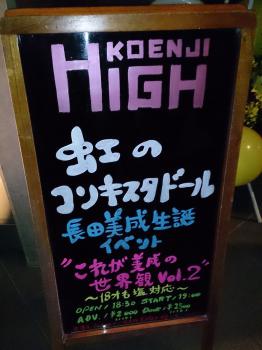 KOENJI
HIGH
虹の
コンキスタドール
長田美成生誕
イベント
"これが美成の
世界観 Vol.2"
～18才も塩対応～
OPEN/18:30 START/19:00
ADV./¥2000 Door/¥2500